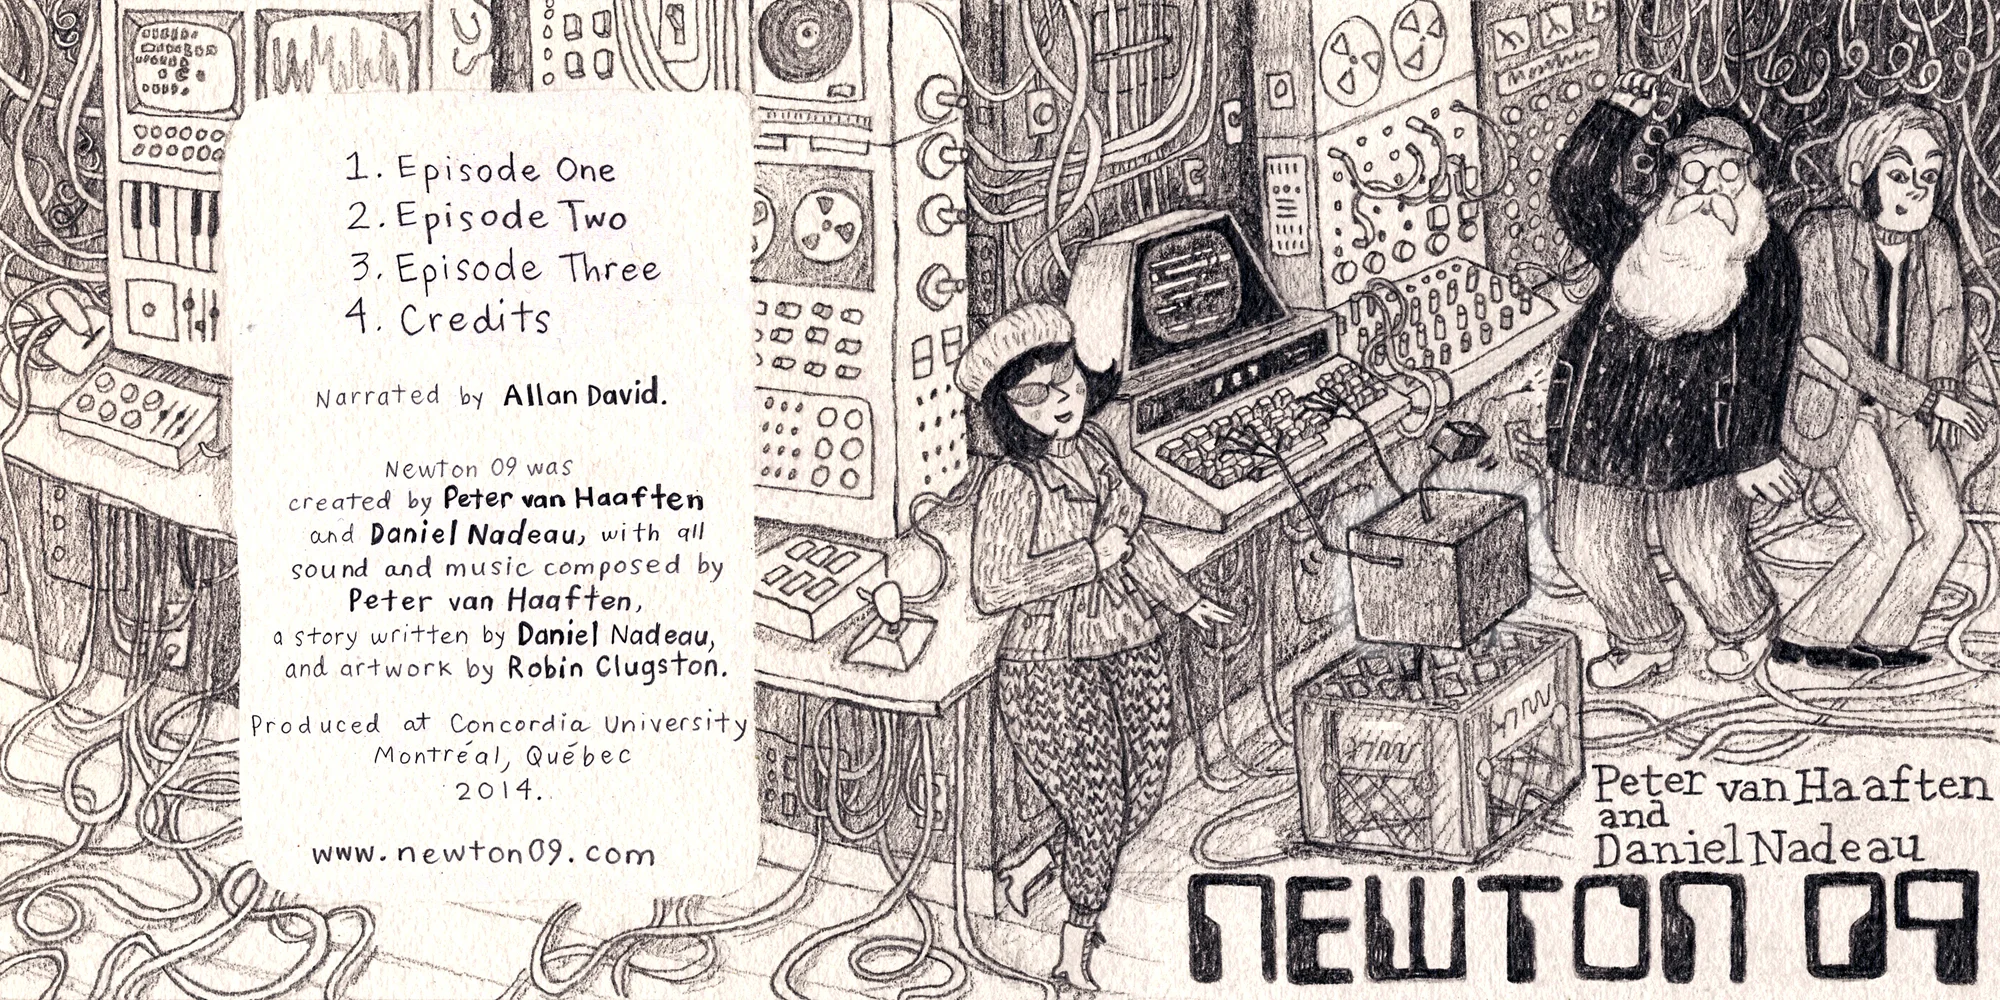 1. Episode One
2. Episode Two
3. Episode Three
4. Credits
Narrated by Allan David.
Newton 09 was
created by Peter van Haaften
and Daniel Nadeau, with all
sound and music composed by
Peter van Haaften,
a story written by Daniel Nadeau,
and artwork by Robin Clugston.
Produced at Concordia University
Montréal, Québec
2014.
www.newton09.com
Peter van Haaften
and
Daniel Nadeau
NEWTON 09